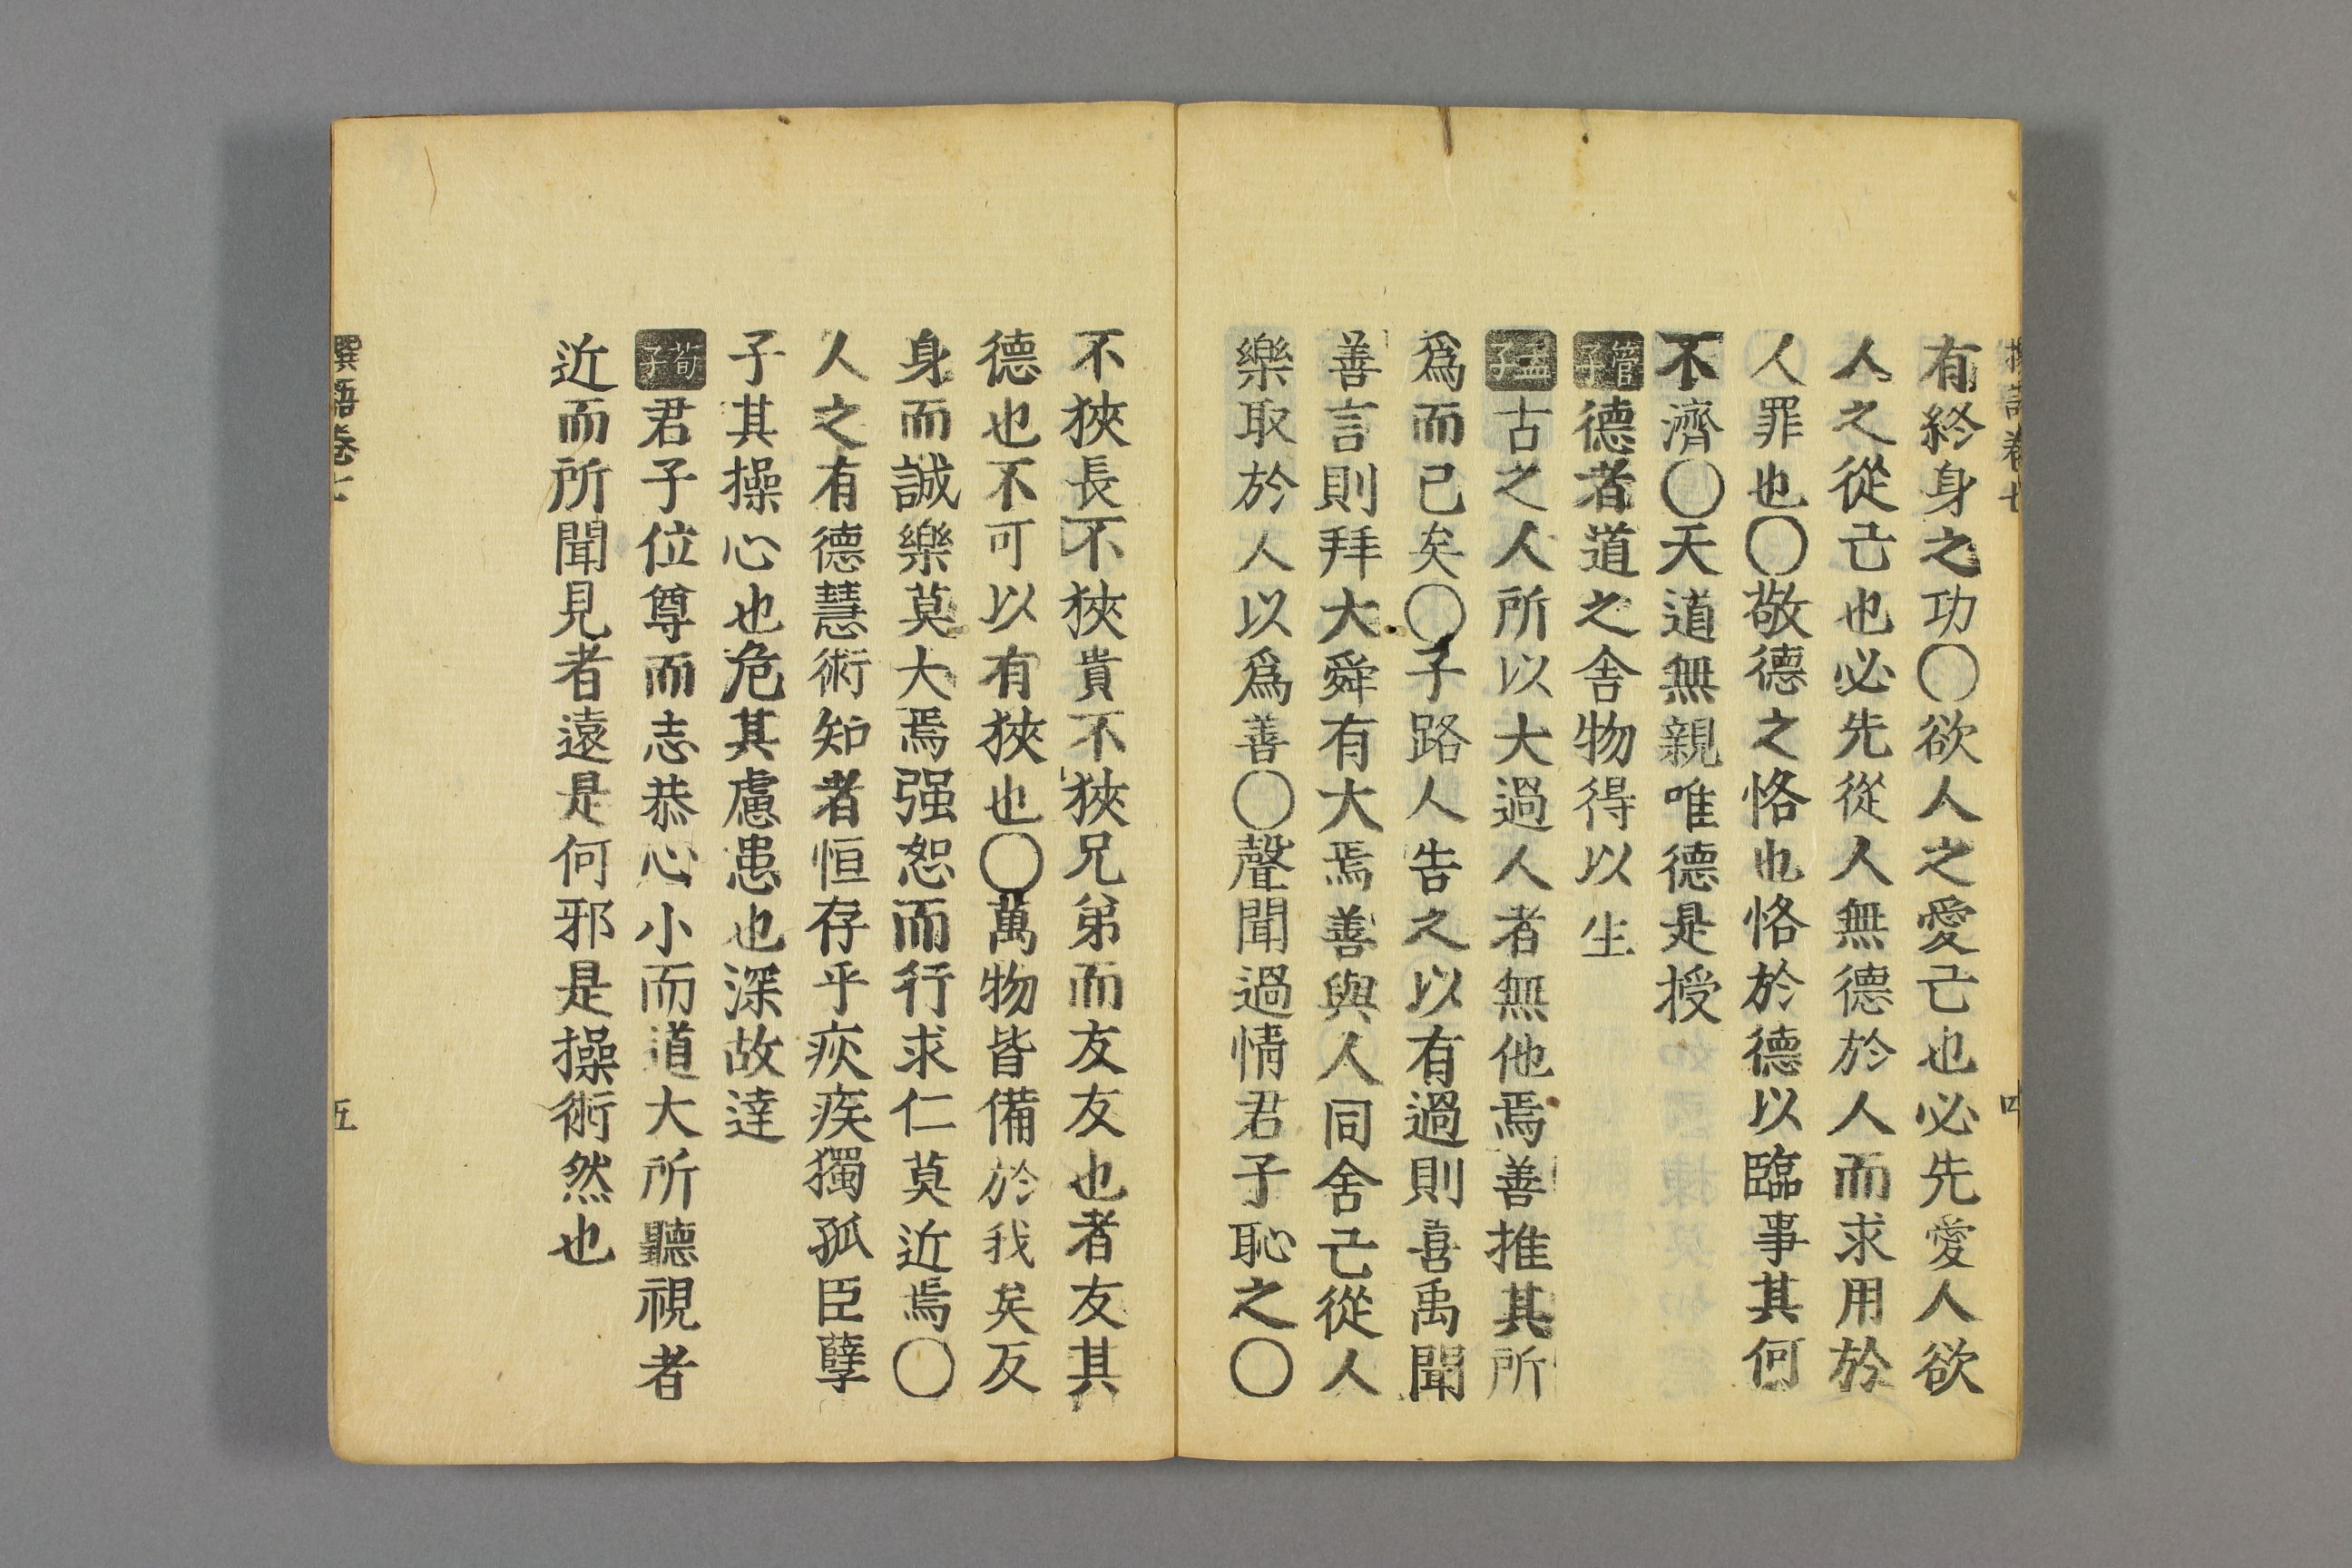 有終身之功〇欲人之愛己也必先愛人欲
人之從己也必先從人無德於人而求用於
人罪也〇敬德之恪也恪於德以臨事其何
不濟〇天道無親唯德是授
管子德者道之舍物得以生
孟子古之人所以大過人者無他焉善推其所
爲而已矣〇子路人告之以有過則喜禹聞
善言則拜大舜有大焉善與人同舍己從人
樂取於人以爲善〇聲聞過情君子恥之〇
不狹長不狹貴不狹兄弟而友友也者友其
德也不可以有狹也〇萬物皆備於我矣反
身而誠樂莫大焉强恕而行求仁莫近焉〇
人之有德慧術知者恒存乎疢疾獨孤臣孽
子其操心也危其慮患也深故達
荀子君子位尊而志恭心小而道大所聽視者
近而所聞見者遠是何邪是操術然也
撰語卷七
五